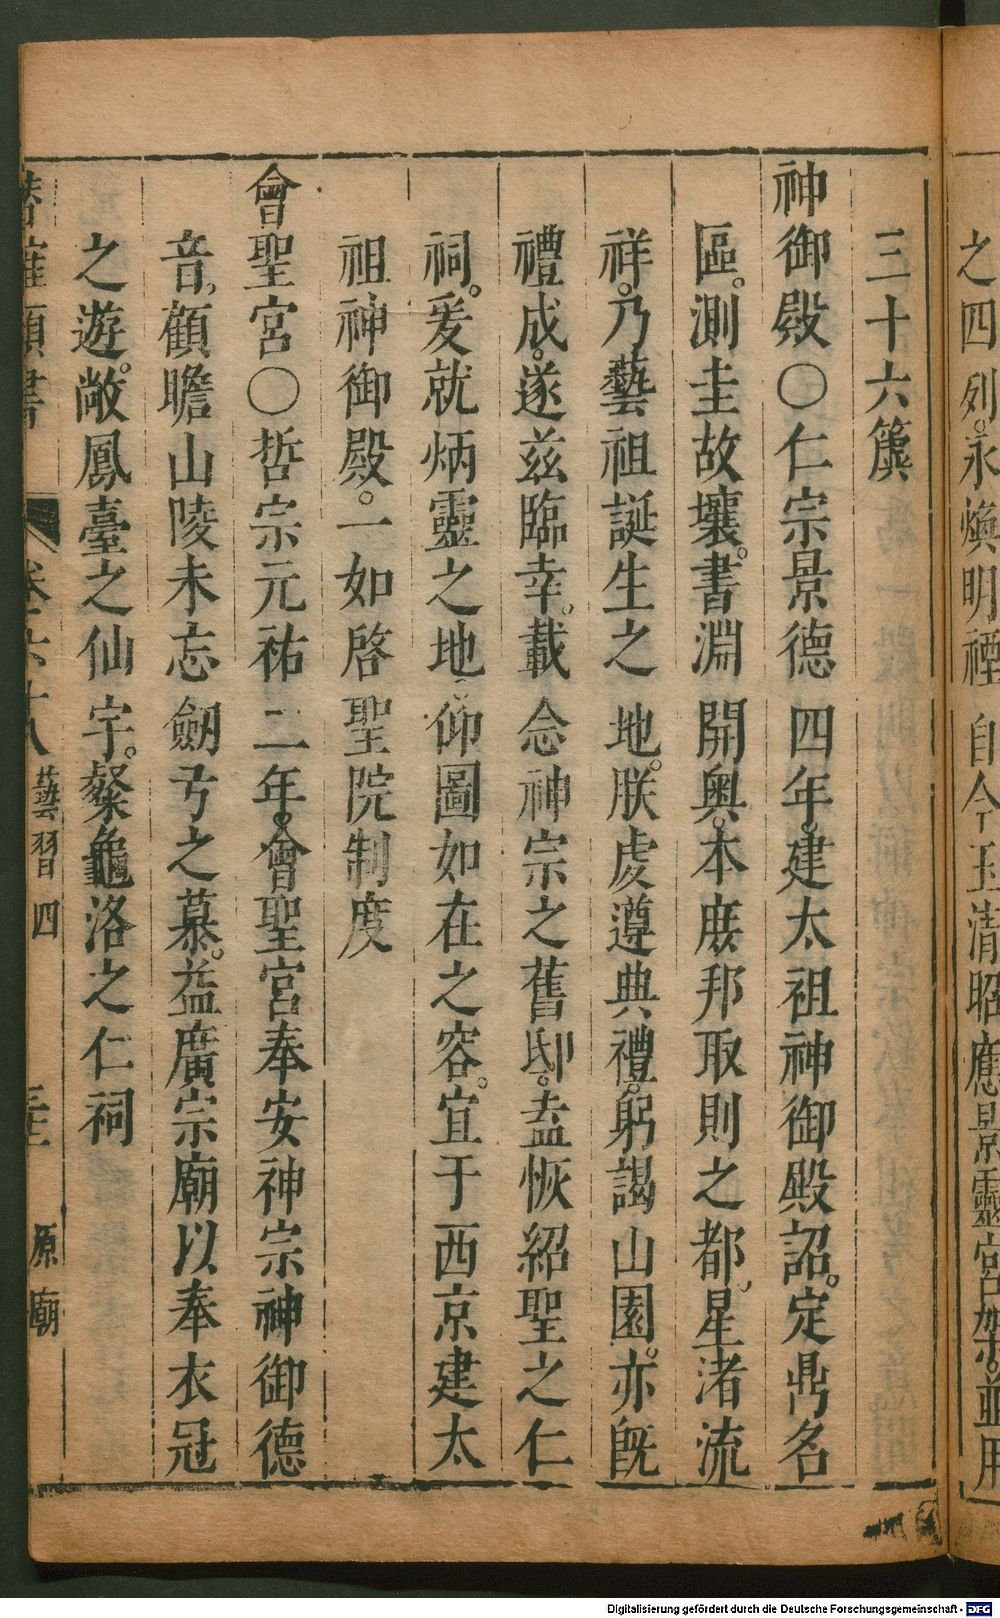 之四列永煥明禋自今玉清昭應景靈宮樂並用
三十六簴
神御殿〇仁宗景德四年建太祖神御殿詔定鼎名
區測圭故壤書淵開奧本庶邦取則之都星渚流
祥乃藝祖誕生之地朕虔遵典禮躬謁山園亦旣
禮成遂兹臨幸載念神宗之舊邸盍恢紹聖之仁
祠爰就炳靈之地仰圖如在之容宜于西京建太
祖神御殿一如啓聖院制度
會聖宮〇哲宗元祐二年會聖宮奉安神宗神御德
音顧瞻山陵未忘劒弓之慕益廣宗廟以奉衣冠
之遊敞鳳臺之仙宇粲龜洛之仁祠
潛確類書
卷六十八
藝習四
原廟
Digitalisierung gefördert durch die Deutsche Forschungsgemeinschaft - DFG